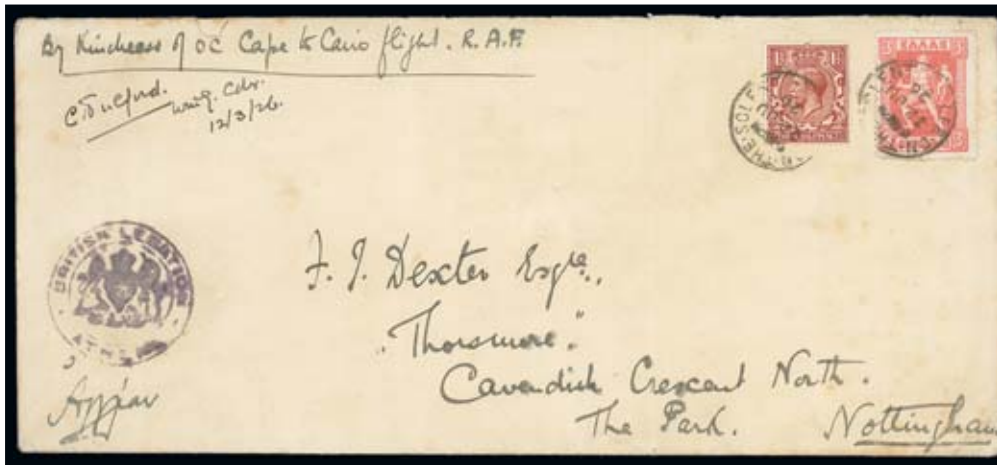 By Kindness of OC Cape to Cairo flight. R.A.F.
Wing. Cdr.
12/3/26.
ΕΛΛΑΣ
3 3
BRITISH LEGATION
F. J. Dexter Esqre.,
"Thorsmore".
Cavendish Crescent North.
The Park. Nottingham